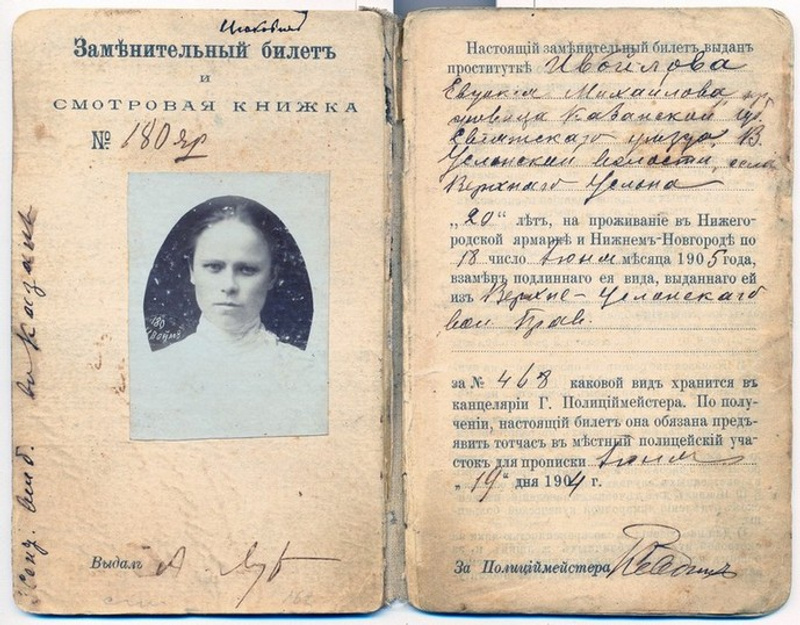 Замѣнительный билетъ
и
СМОТРОВАЯ КНИЖКА
№ 180 яр
180
Выдалъ А.
Настоящій замѣнительный билетъ выданъ
проституткѣ
Евдокія Михайлова,
Казанской губ.
Свіяжскаго уѣзда, В.
Услонской волости, села
Верхняго Услона
„20“ лѣтъ, на проживаніе въ Нижего-
родской ярмаркѣ и Нижнемъ-Новгородѣ по
18 число Іюня мѣсяца 1905 года,
взамѣнъ подлиннаго ея вида, выданнаго ей
изъ Верхне-Услонскаго
вол. Прав.
за № 468 каковой видъ хранится въ
канцеляріи Г. Полиціймейстера. По полу-
ченіи, настоящій билетъ она обязана предъ-
явить тотчасъ въ мѣстный полицейскій уча-
стокъ для прописки Іюня
„19“ дня 1904 г.
За Полиціймейстера
въ Казань